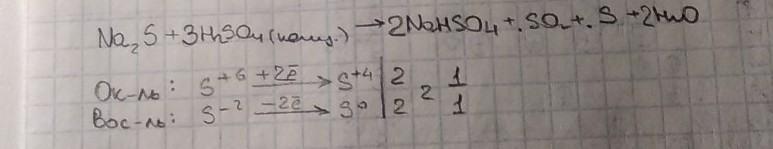 Na₂S + 3H₂SO₄ (конц.) → 2NaHSO₄ + SO₂ + S + 2H₂O
Ок-ль: S⁺⁶ +2ē → S⁺⁴ | 2 2 1
Вос-ль: S⁻² −2ē → S⁰ | 2 1